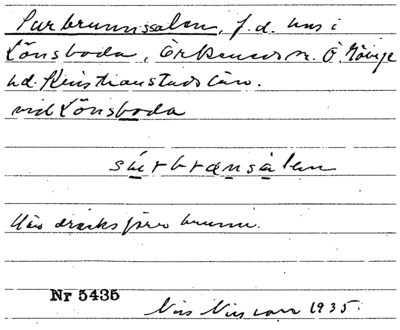 Surbrunnssalen, f.d. hus i
Lönsboda, Örkeneds sn. Ö. Göinge
hd. Kristianstads län.
vid Lönsboda
sürbrɑnsalen
Här dracks förr brunn.
Nr 5435
Nils Nilsson 1935.